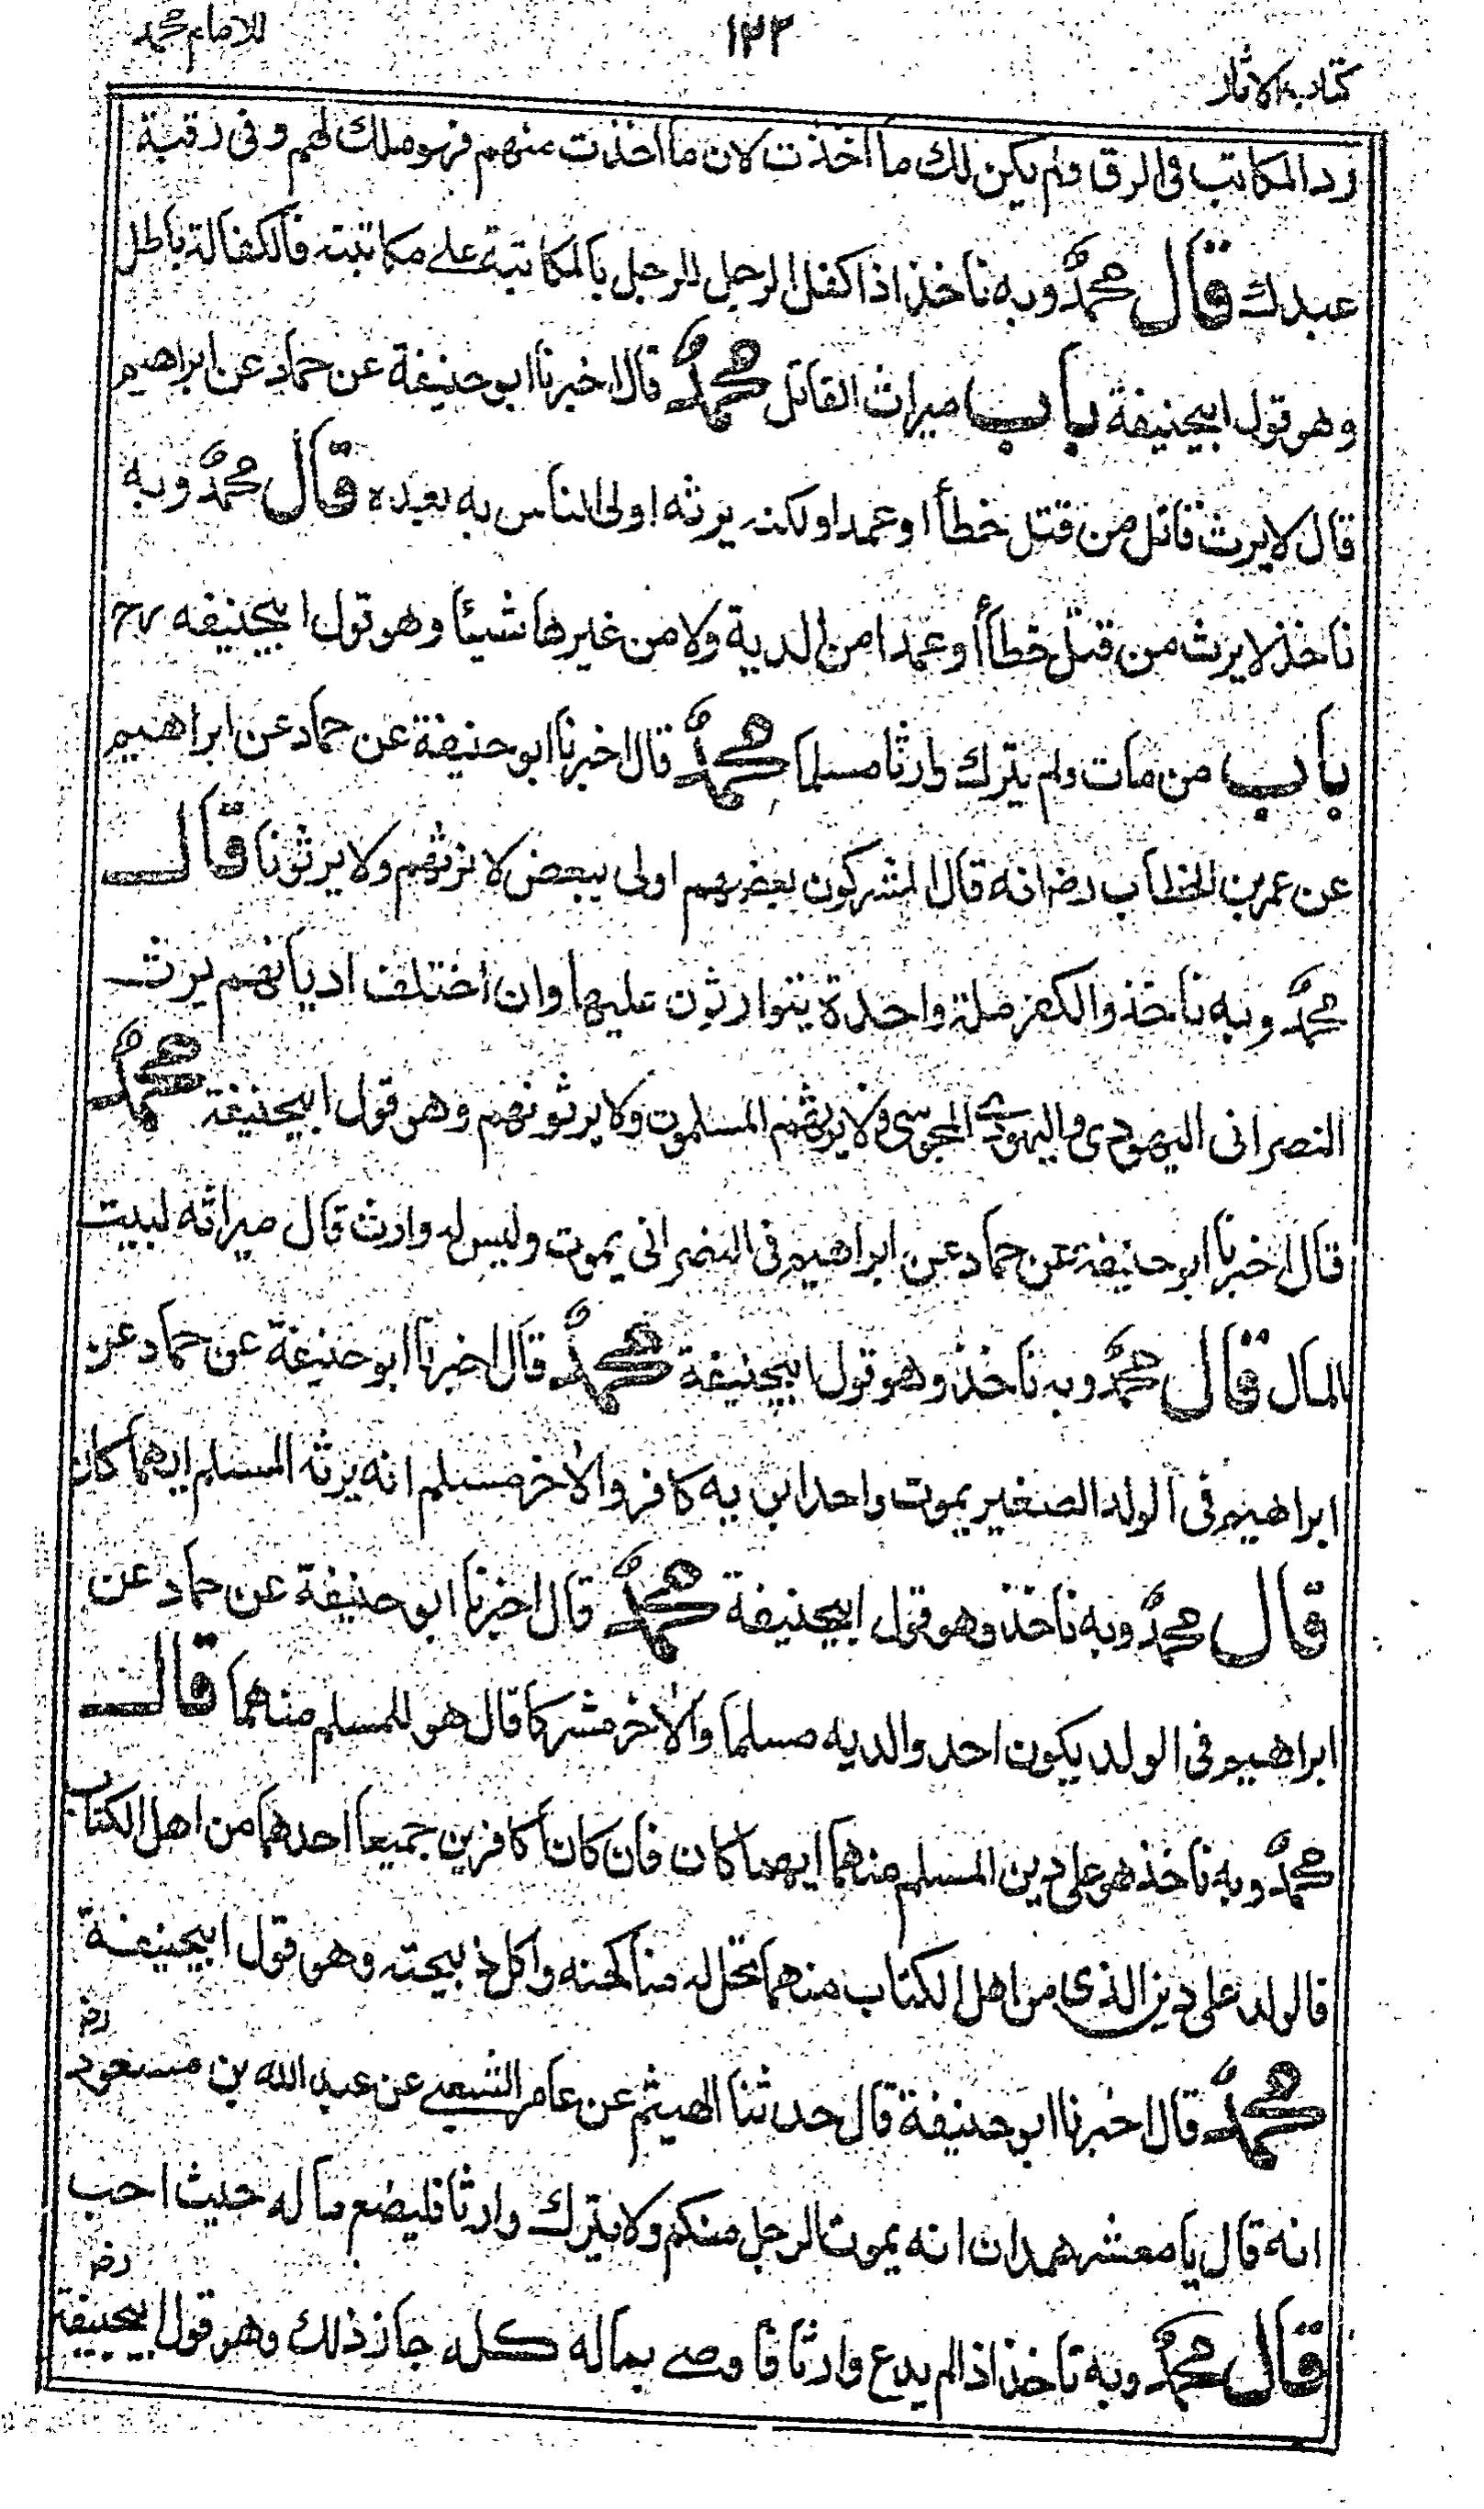 كتاب الاثار
١٢٢
للامام محمد
رد المكاتب فى الرق ولم يكن لك ما اخذت لان ما اخذت منهم فهو ملك لهم و فى رقبة
عبدك قال محمدٌ وبه ناخذ اذا كفل الرجل للرجل بالمكاتبة على مكاتبته فالكفالة باطل
وهو قول ابيحنيفة باب ميراث القاتل محمدٌ قال اخبرنا ابو حنيفة عن حماد عن ابراهيم
قال لا يرث قاتل من قتل خطأ او عمدا ولكنه يرثه اولى الناس به بعيده قال محمدٌ وبه
ناخذ لا يرث من قتل خطأ او عمدا من الدية ولا من غيرها شيئا وهو قول ابيحنيفه رح
باب من مات ولم يترك وارثا مسلما محمدٌ قال اخبرنا ابو حنيفة عن حماد عن ابراهيم
عن عمر بن الخطاب رضـ انه قال المشركون بعضهم اولى ببعض لا نرثهم ولا يرثونا قال
محمدٌ وبه ناخذ والكفر ملة واحدة يتوارثون عليها وان اختلف اديانهم يرث
النصرانى اليهودى واليهودى المجوسى ولا يرثهم المسلمون ولا يرثونهم وهو قول ابيحنيفة محمدٌ
قال اخبرنا ابو حنيفة عن حماد عن ابراهيم فى النصرانى يموت وليس له وارث قال ميراثه لبيت
المال قال محمدٌ وبه ناخذ وهو قول ابيحنيفة محمدٌ قال اخبرنا ابو حنيفة عن حماد عن
ابراهيم فى الولد الصغير يموت واحد ابويه كافر والاٰخر مسلم انه يرثه المسلم ايهما كان
قال محمدٌ وبه ناخذ وهو قول ابيحنيفة محمدٌ قال اخبرنا ابو حنيفة عن حماد عن
ابراهيم فى الولد يكون احد والديه مسلما والاٰخر مشركا قال هو للمسلم منهما قال
محمدٌ وبه ناخذ هو على دين المسلم منهما ايهما كان فان كانا كافرين جميعا احدهما من اهل الكتاب
فالولد على دين الذى من اهل الكتاب منهما تحل له مناكحته واكل ذبيحته وهو قول ابيحنيفة
محمدٌ قال اخبرنا ابو حنيفة قال حدثنا الهيثم عن عامر الشعبى عن عبد الله بن مسعود رضـ
انه قال يا معشر همدان انه يموت الرجل منكم ولا يترك وارثا فليضع ماله حيث احب
قال محمدٌ وبه ناخذ اذا لم يدع وارثا فاوصى بماله كله جاز ذلك وهو قول ابيحنيفة رضـ